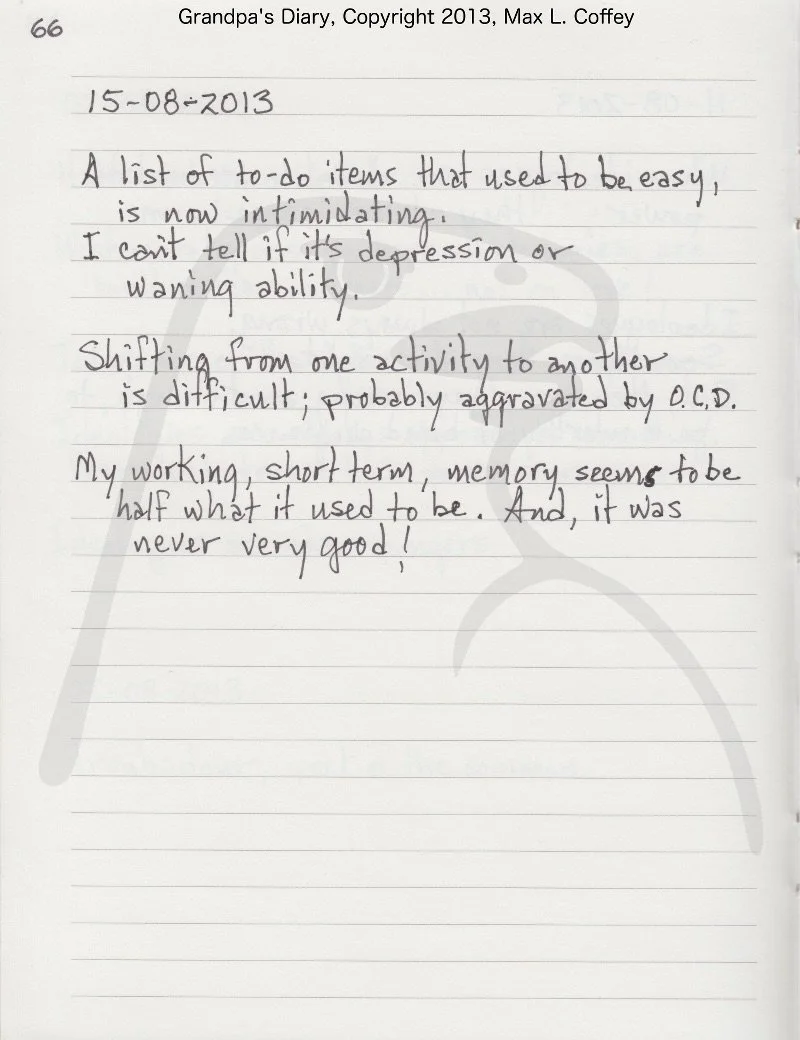 Grandpa's Diary, Copyright 2013, Max L. Coffey
66
15-08-2013
A list of to-do items that used to be easy,
is now intimidating.
I can't tell if it's depression or
waning ability.
Shifting from one activity to another
is difficult; probably aggravated by O.C.D.
My working, short term, memory seems to be
half what it used to be. And, it was
never very good!